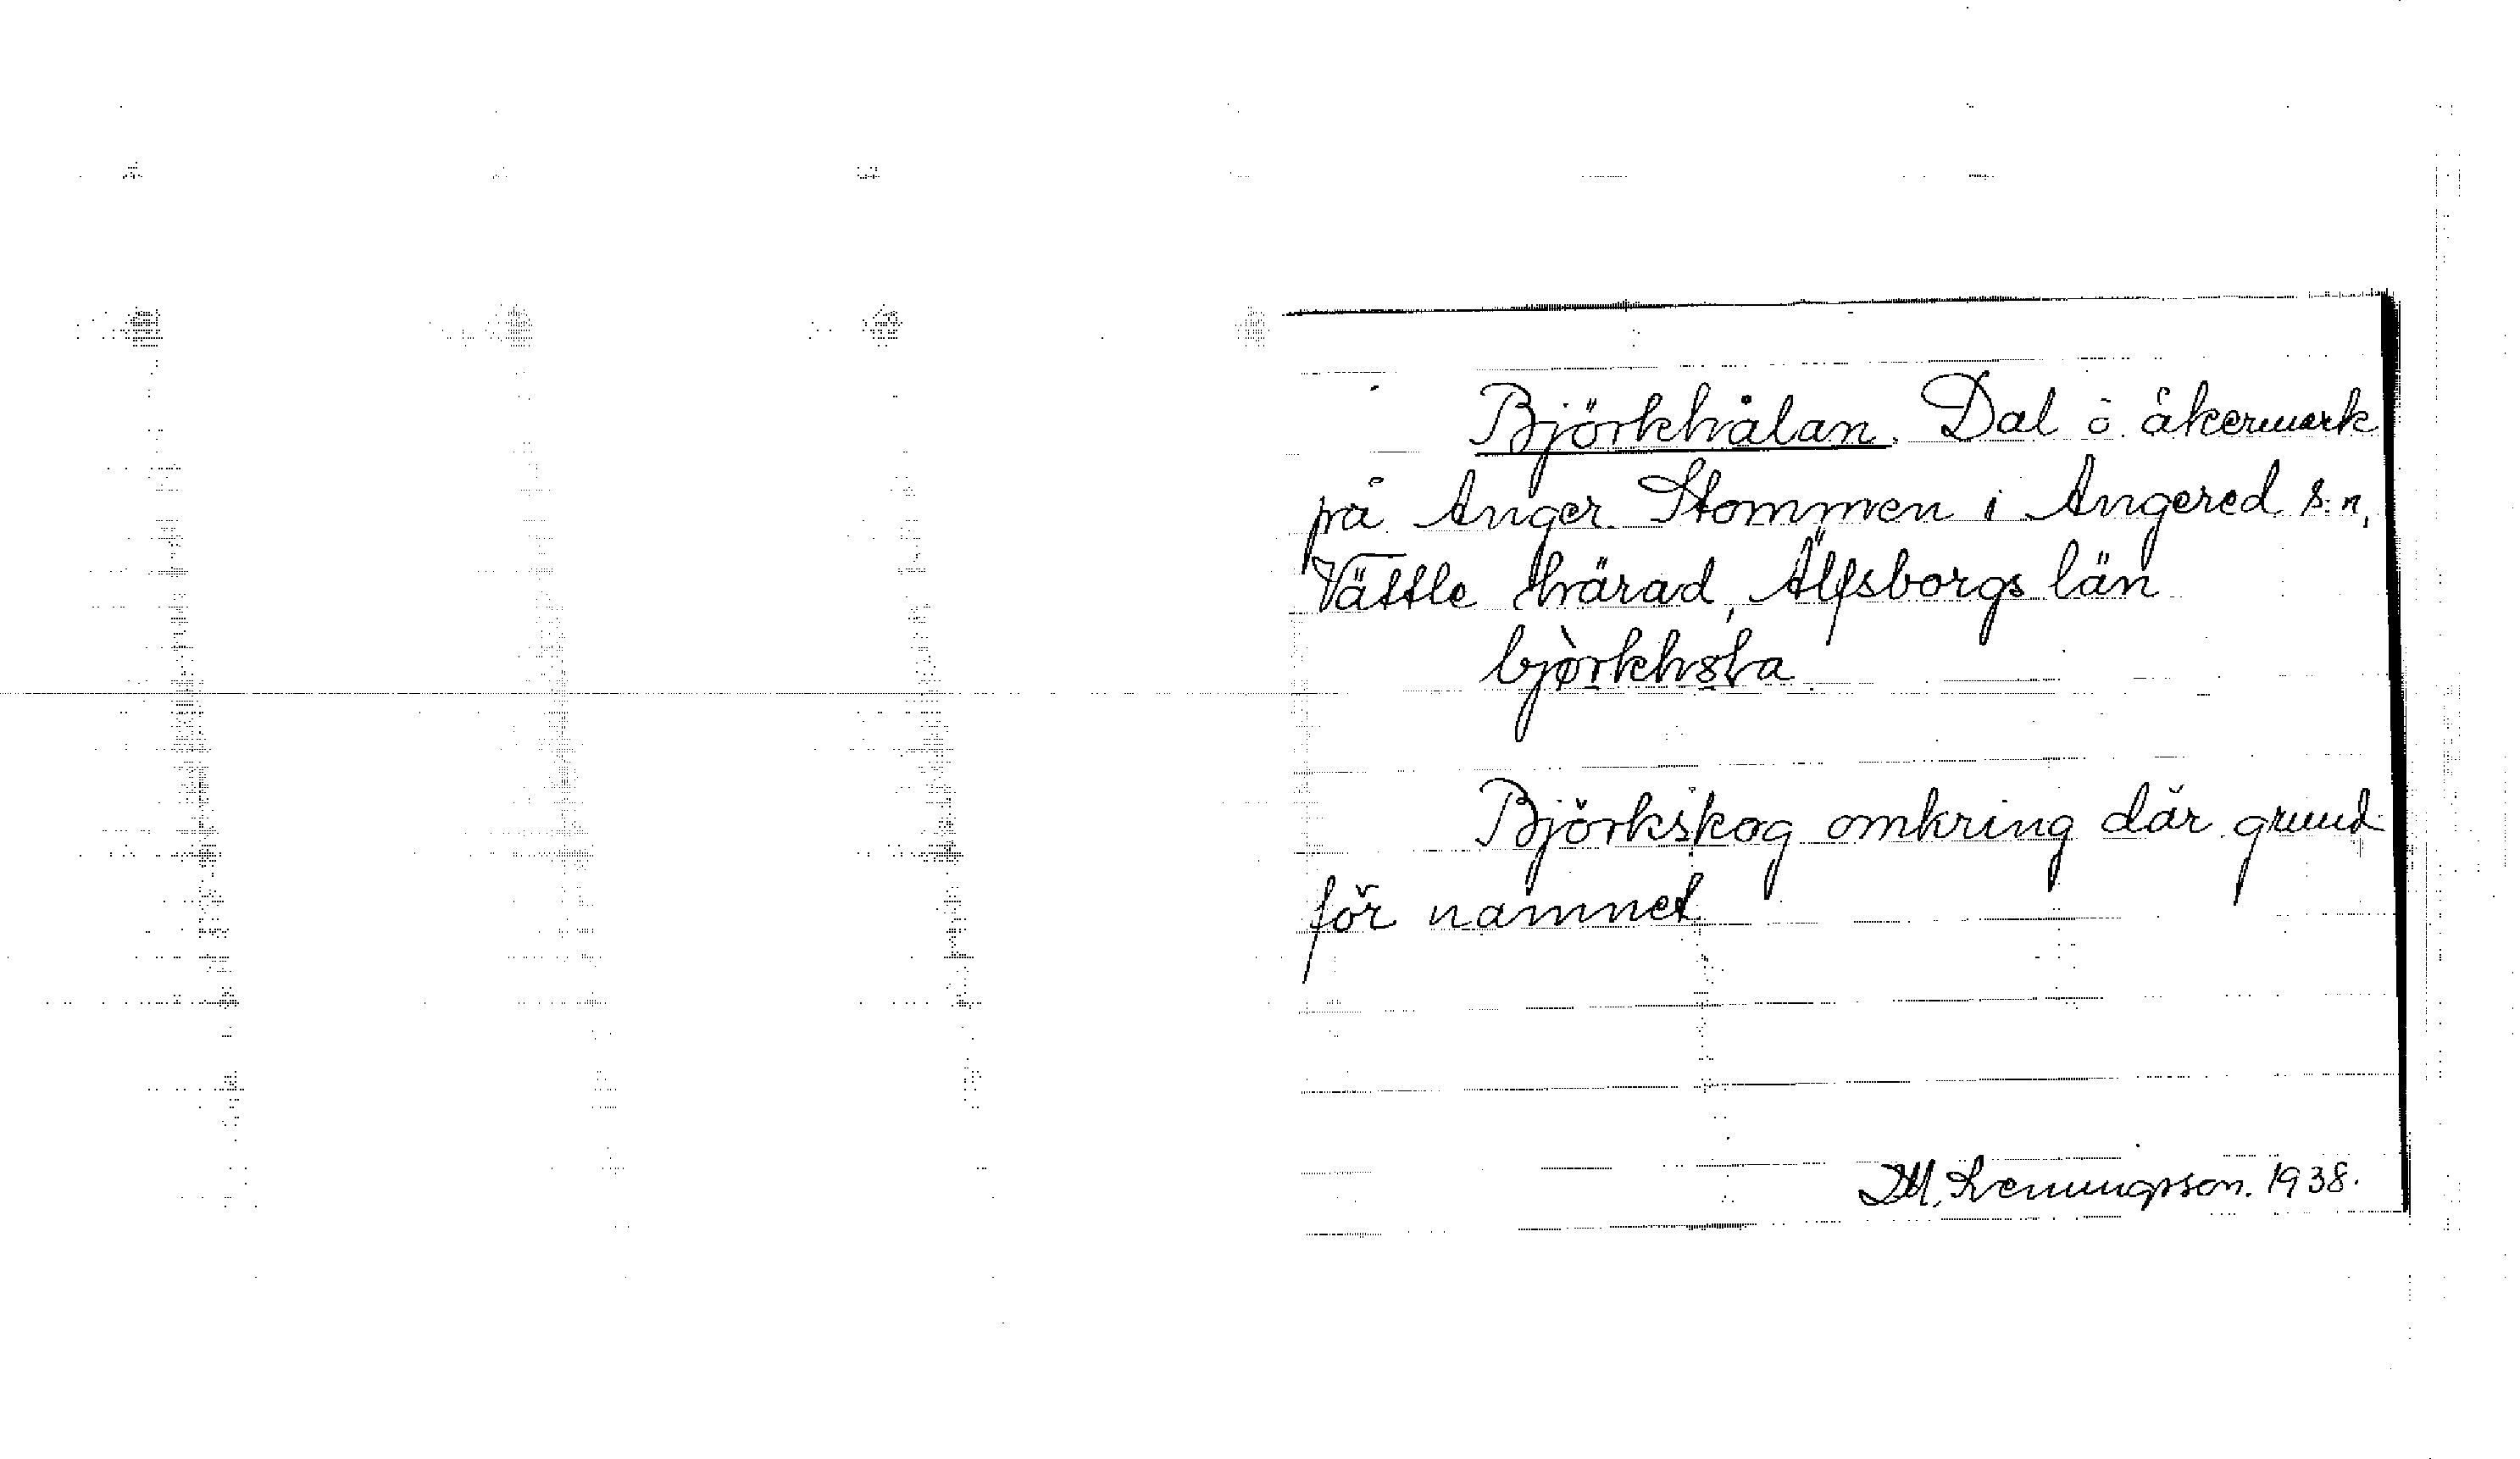 Björkhålan. Dal o. åkermark
på Anger Stommen i Angered s:n,
Vättle härad, Älfsborgs län
Björkskog omkring där grund
för namnet
1938.